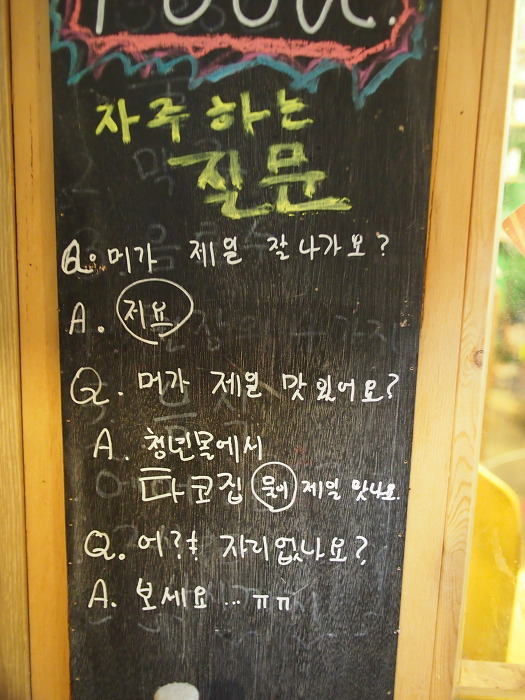 Food.
자주하는
질문
Q. 머가 제일 잘나가요?
A. 저요
Q. 머가 제일 맛있어요?
A. 청년몰에서
타코집 물이 제일 맛나요.
Q. 어?! 자리없나요?
A. 보세요... ㅠㅠ